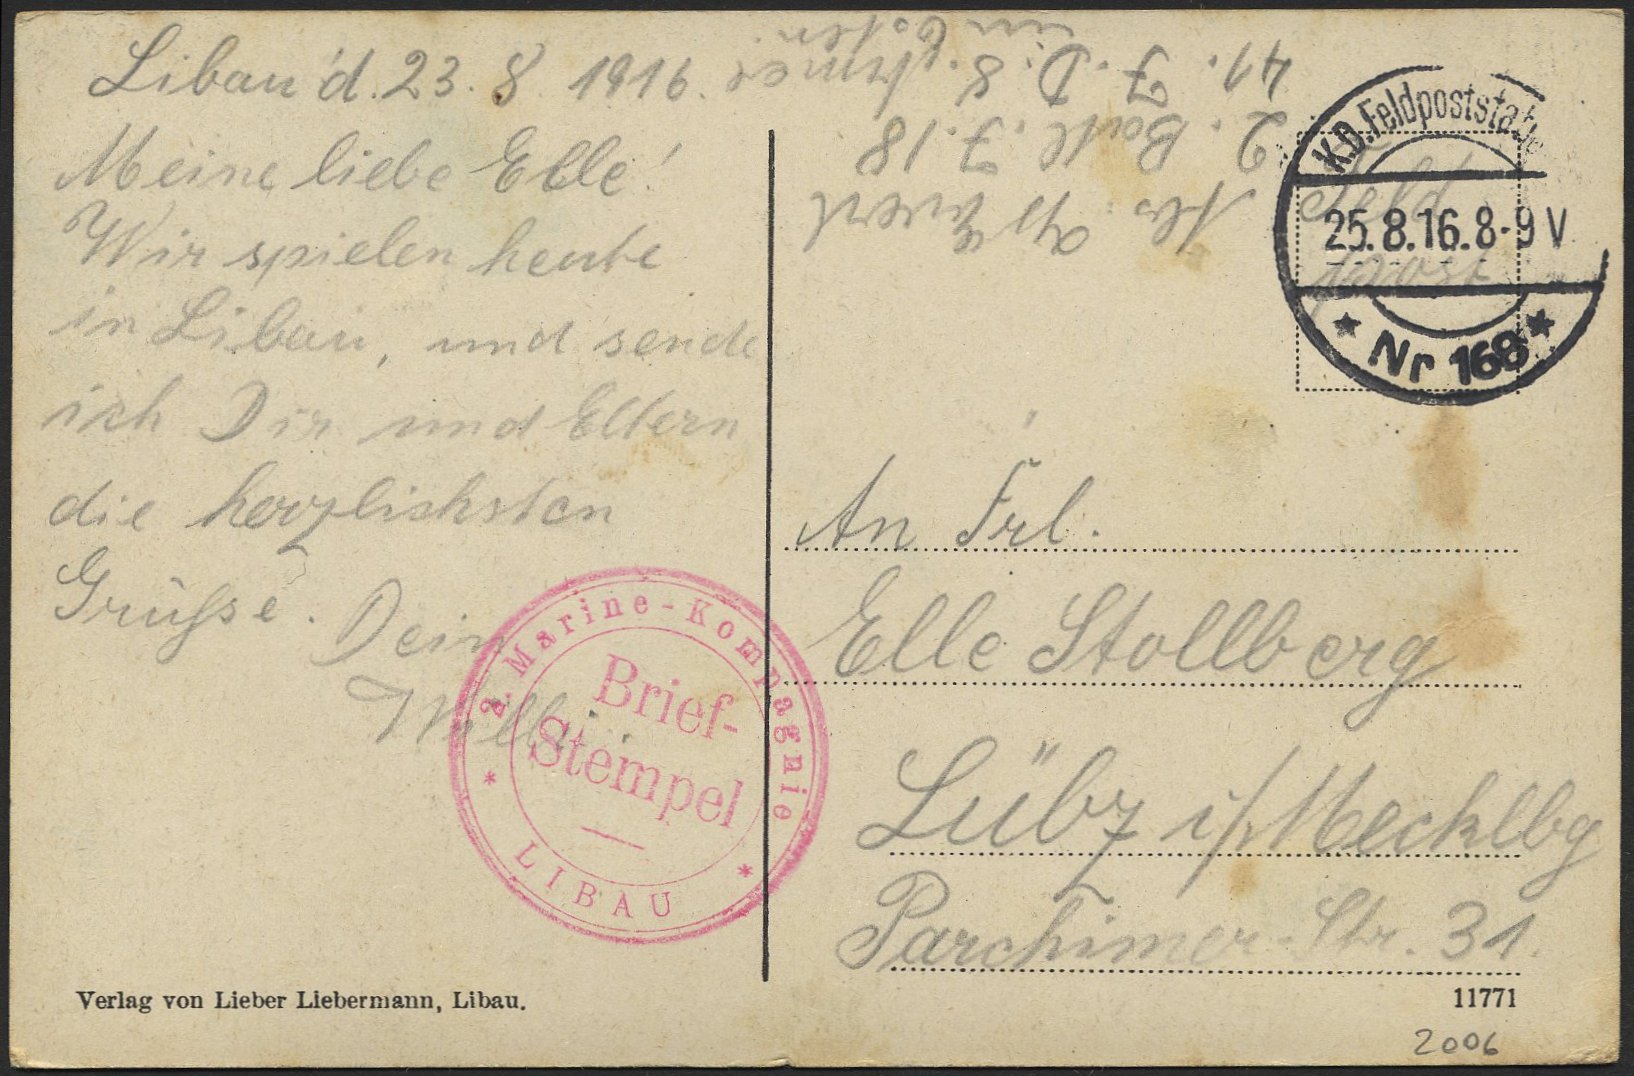 Libau d. 23. 8. 1916.
Meine liebe Elle!
Wir spielen heute
in Libau, und sende
ich Dir und Eltern
die herzlichsten
Grüsse. Dein
Willi.
2. Marine-Kompagnie
Brief-
Stempel
* LIBAU *
Verlag von Lieber Liebermann, Libau.
Abs.
2. Batl. J. 18
41. J. D. 8. Armee
im Osten.
K.D. Feldpoststat
25.8.16.8-9 V
* Nr 168 *
Feld
post
An Frl.
Elle Stollberg
Lübz i/Mecklbg
Parchimer-Str. 31.
11771
2006